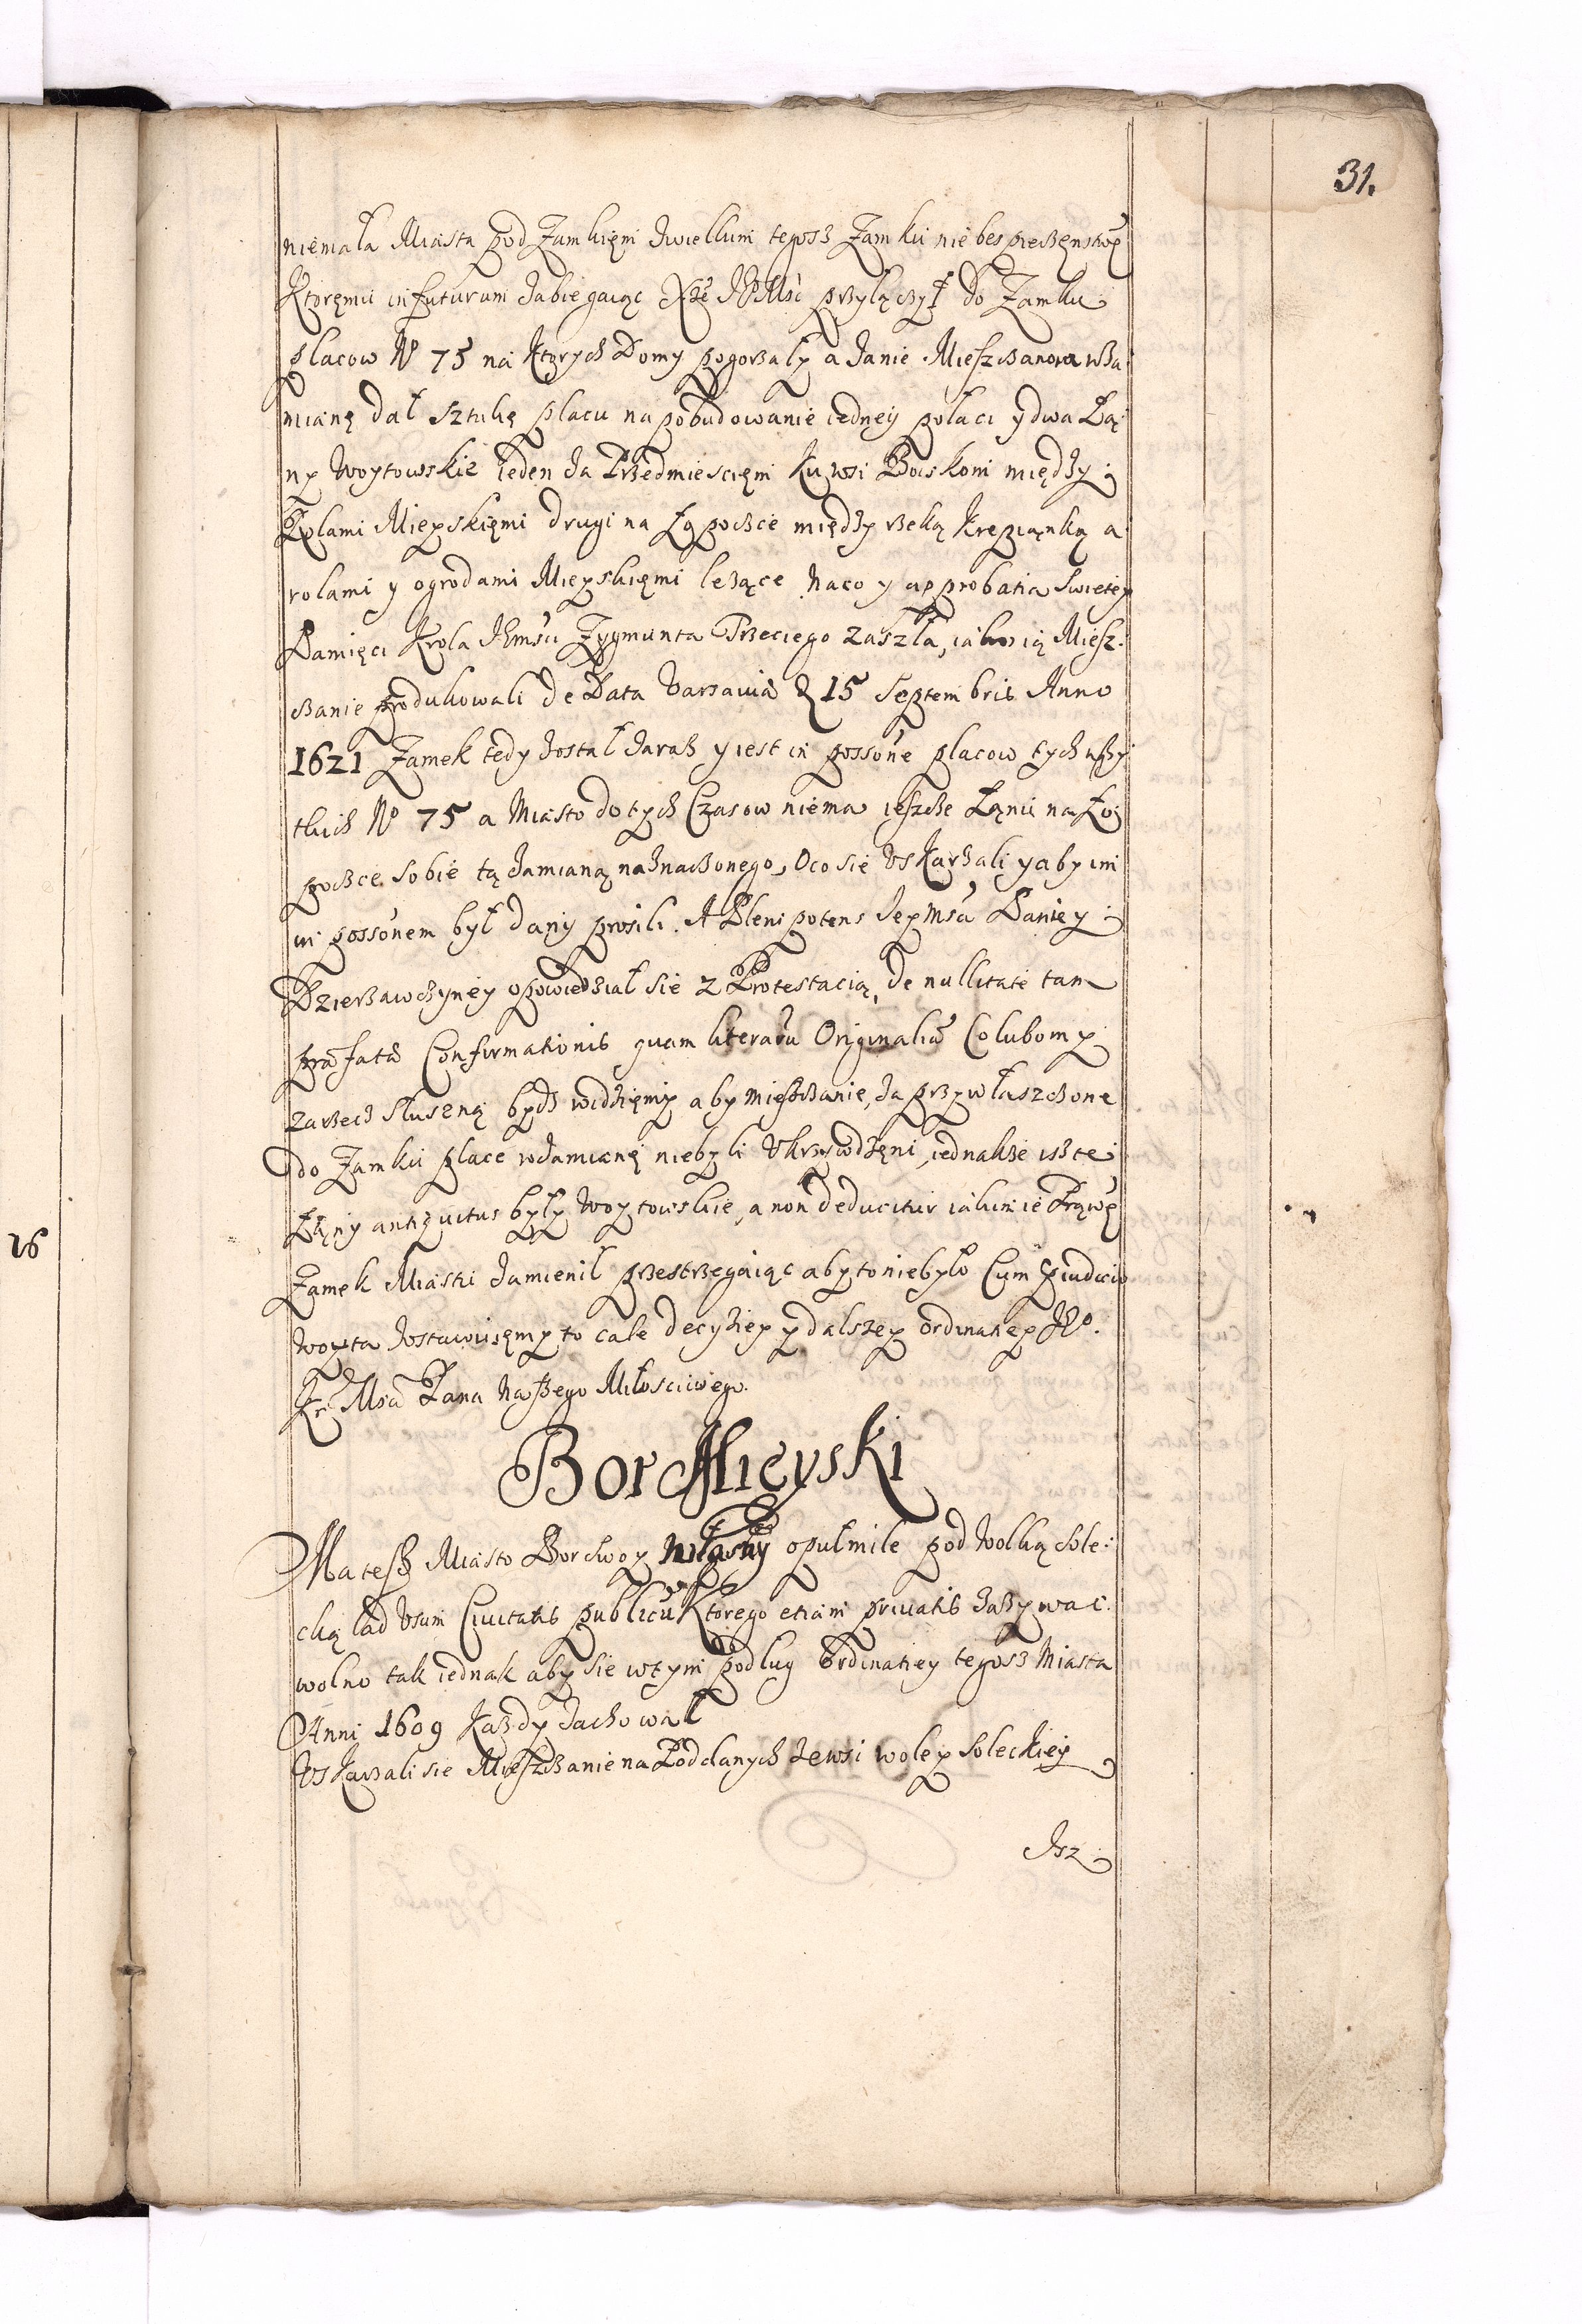 31.
niemała Miasta pod Zamkięm zwielkim tegosz Zamku niebespieczęnstwę
Ktoręmu in futurum zabiegaiąc Xże JoMść przyłączył do Zamku
placow No 75 na Ktorych Domy pogorzały a zanie Mieszczanom wza
mianę dał sztukę placu na pobudowanie iedney połaci y dwa Łą
ny Woytowskie ieden za Przedmiescięm Ku wsi Boiskom między
Rolami Mieyskięmi drugi na Łąpoczce między rzeką Krępianką a
rolami y ogrodami Mieyskięmi leżące naco y approbatia swietey
Pamięci Krola JEmści Zygmunta Trzeciego zaszła, iakosią Miesz:
czanie produkowali de Data Varsaviæ D 15 Septembris Anno
1621 Zamek tedy został zaraz y iest in possone placow tych wszy
tkich No 75 a Miasto do tych Czasow niema ieszcze Łąnu na Łą
poczce sobie tą zamianą naznaczonego, Oco sie Uskarżali y aby im
in possonem był dany prosili. A Plenipotens Jeymści Paniey
Dzierzawczyney opowiedział sie z Protestacią, de nullitate tam
præfatæ Confirmationis quam literarū Originaliū Colubomy
zarzecz słuszną bydz widzięmy aby mieszczanie, za przywłaszczone
do Zamku place wzamianę niebyli Ukrzywdzęni, iednakże isz te
Łąny antiquitus były Woytowskie, a non deducitur iakimie Prawę
Zamek Miastu zamienił przestrzegaiąc aby to niebyło Cum Piudicio
Woyta zostawuięmy to całe decyziey y dalszey ordinatiey JKo.
Kr Mści Pana Naszego Miłosciwego.
Bor Mieyski
Ma tesz Miasto Bor swoy własny opułmile pod Wolką Sole:
cką ad Usum Civitatis publicū Ktorego etiam privatis zażywac
wolno tak iednak aby sie wtym podlug Ordinatiey tegosz Miasta
Anni 1609 Każdy zachował
Uskarzali sie Mieszczanie na Poddanych zewsi Woley Soleckiey
Isz
16